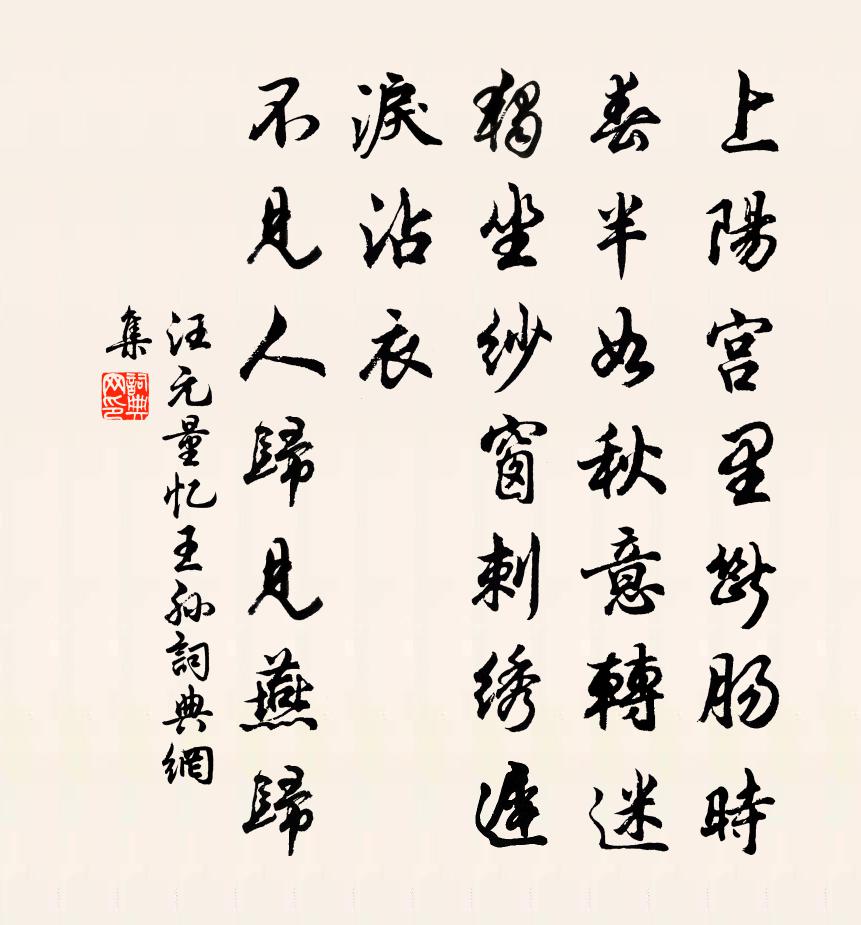 上陽宮里斷肠時
春半如秋意轉迷
獨坐紗窗刺綉遲
淚沾衣
不見人歸見燕歸
汪元量忆王孙詞典網
集
詞典网印